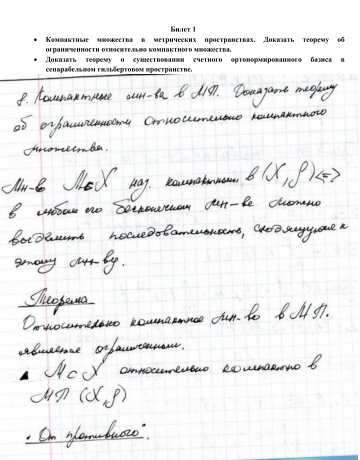 Билет 1
• Компактные множества в метрических пространствах. Доказать теорему об
ограниченности относительно компактного множества.
• Доказать теорему о существовании счетного ортонормированного базиса в
сепарабельном гильбертовом пространстве.
8. Компактные мн-ва в МП. Доказать теорему
об ограниченности относительно компактного
множества.
Мн-во M⊂X наз. компактным в (X, ρ) <=>
в любом его бесконечном мн-ве можно
выделить последовательность, сходящуюся к
этому мн-ву.
Теорема
Относительно компактное мн-во в МП.
является ограниченным.
▲ M⊂X относительно компактно в
МП (X, ρ)
• "От противного".